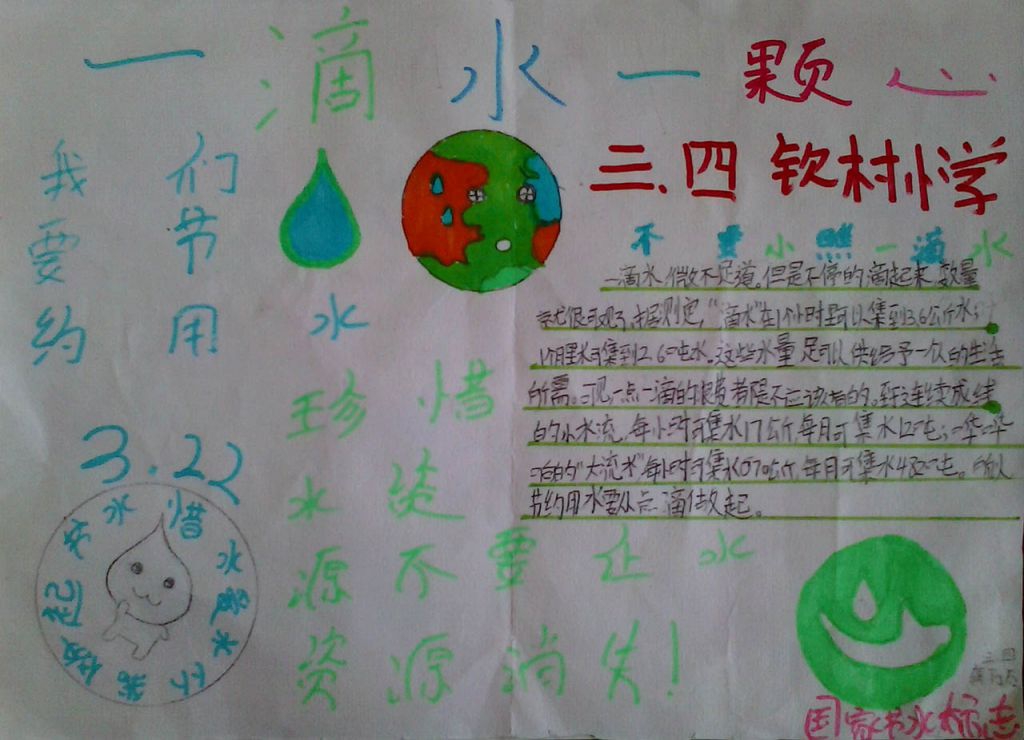 一滴水一颗心
三、四 钦村小学
我们
要节
约用水
不要小瞧一滴水
一滴水,微不足道。但是不停的滴起来,数量
就很可观了。据测定,“滴水”在1个小时里可以集到3.6公斤水;
1个月里可集到2.6吨水。这些水量,足可以供给予一个人的生活
所需。可见,一点一滴的浪费都是不应该有的。至于连续成线
的小水流,每小时可集水17公斤,每月可集水12吨;
的“大流水”每小时可集水670公斤,每月可集水482吨。所以
节约用水要从点滴做起。
珍惜
水资
源不要让水
资源消失!
3.22
惜水爱水从
做起 节水
三四
国家节水标志